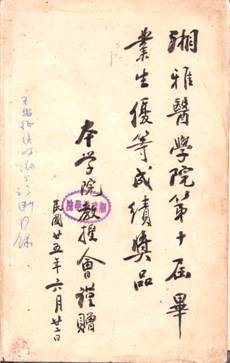 湘雅醫學院第十屆畢
業生優等成績獎品
本学院教授會謹贈
民國廿五年六月廿二日